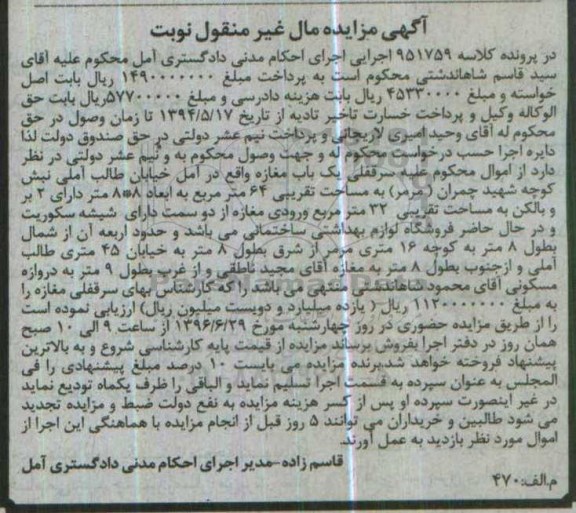 آگهی مزایده مال غیر منقول نوبت
در پرونده کلاسه ۹۵۱۷۵۹ اجرایی اجرای احکام مدنی دادگستری آمل محکوم علیه آقای
سید قاسم شاهاندشتی محکوم است به پرداخت مبلغ ۱۴۹۰۰۰۰۰۰۰ ریال بابت اصل
خواسته و مبلغ ۴۵۳۳۰۰۰۰ ریال بابت هزینه دادرسی و مبلغ ۵۷۷۰۰۰۰۰ریال بابت حق
الوکاله وکیل و پرداخت خسارت تاخیر تادیه از تاریخ ۱۳۹۴/۵/۱۷ تا زمان وصول در حق
محکوم له آقای وحید امیری لاریجانی و پرداخت نیم عشر دولتی در حق صندوق دولت لذا
دایره اجرا حسب درخواست محکوم له و جهت وصول محکوم به و نیم عشر دولتی در نظر
دارد از اموال محکوم علیه سرقفلی یک باب مغازه واقع در آمل خیابان طالب آملی نبش
کوچه شهید چمران (مرمر) به مساحت تقریبی ۶۴ متر مربع به ابعاد ۸*۸ متر دارای ۲ بر
و بالکن به مساحت تقریبی ۳۲ متر مربع ورودی مغازه از دو سمت دارای شیشه سکوریت
و در حال حاضر فروشگاه لوازم بهداشتی ساختمانی می باشد و حدود اربعه آن از شمال
بطول ۸ متر به کوچه ۱۶ متری مرمر از شرق بطول ۸ متر به خیابان ۴۵ متری طالب
آملی و ازجنوب بطول ۸ متر به مغازه آقای مجید ناطقی و از غرب بطول ۹ متر به دروازه
مسکونی آقای محمود شاهاندشتی منتهی می باشد را که کارشناس بهای سرقفلی مغازه را
به مبلغ ۱۱۲۰۰۰۰۰۰۰۰ ریال( یازده میلیارد و دویست میلیون ریال) ارزیابی نموده است
را از طریق مزایده حضوری در روز چهارشنبه مورخ ۱۳۹۶/۶/۲۹ از ساعت ۹ الی ۱۰ صبح
همان روز در دفتر اجرا بفروش برساند مزایده از قیمت پایه کارشناسی شروع و به بالاترین
پیشنهاد فروخته خواهد شد.برنده مزایده می بایست ۱۰ درصد مبلغ پیشنهادی را فی
المجلس به عنوان سپرده به قسمت اجرا تسلیم نماید و الباقی را ظرف یکماه تودیع نماید
در غیر اینصورت سپرده او پس از کسر هزینه مزایده به نفع دولت ضبط و مزایده تجدید
می شود طالبین و خریداران می توانند ۵ روز قبل از انجام مزایده با هماهنگی این اجرا از
اموال مورد نظر بازدید به عمل آورند.
قاسم زاده-مدیر اجرای احکام مدنی دادگستری آمل
م.الف:۴۷۰